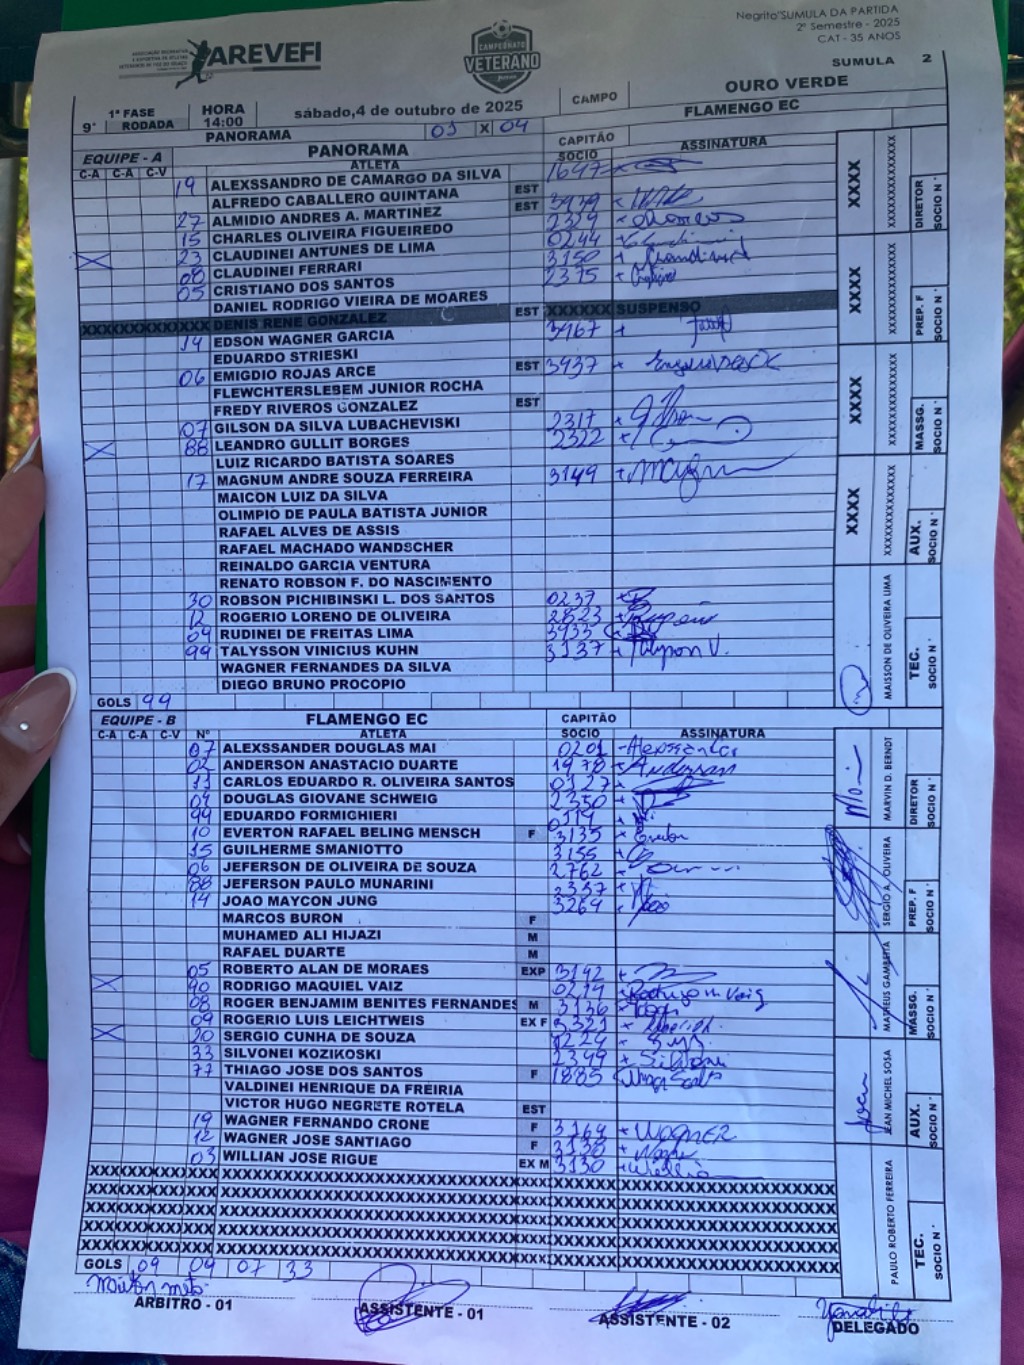 Negrito'SUMULA DA PARTIDA
2º Semestre - 2025
CAT - 35 ANOS
AREVEFI
CAMPEONATO
VETERANO
SUMULA 2
1ª FASE HORA sábado,4 de outubro de 2025 CAMPO OURO VERDE
9ª RODADA 14:00
PANORAMA 03 X 04 FLAMENGO EC
EQUIPE - A PANORAMA CAPITÃO
C-A C-A C-V ATLETA SOCIO ASSINATURA
19 ALEXSSANDRO DE CAMARGO DA SILVA 1647
ALFREDO CABALLERO QUINTANA EST
27 ALMIDIO ANDRES A. MARTINEZ EST 3979
15 CHARLES OLIVEIRA FIGUEIREDO 2329
23 CLAUDINEI ANTUNES DE LIMA 0244
08 CLAUDINEI FERRARI 3150
05 CRISTIANO DOS SANTOS 2375
DANIEL RODRIGO VIEIRA DE MOARES
XXXXXXXXXXXXXXX DENIS RENE GONZALEZ EST XXXXXX SUSPENSO
14 EDSON WAGNER GARCIA 3467
EDUARDO STRIESKI
06 EMIGDIO ROJAS ARCE EST 3937
FLEWCHTERSLEBEM JUNIOR ROCHA
FREDY RIVEROS GONZALEZ EST
07 GILSON DA SILVA LUBACHEVISKI 2317
88 LEANDRO GULLIT BORGES 2322
LUIZ RICARDO BATISTA SOARES
17 MAGNUM ANDRE SOUZA FERREIRA 3149
MAICON LUIZ DA SILVA
OLIMPIO DE PAULA BATISTA JUNIOR
RAFAEL ALVES DE ASSIS
RAFAEL MACHADO WANDSCHER
REINALDO GARCIA VENTURA
RENATO ROBSON F. DO NASCIMENTO
30 ROBSON PICHIBINSKI L. DOS SANTOS 0237
12 ROGERIO LORENO DE OLIVEIRA 2823
09 RUDINEI DE FREITAS LIMA 3933
99 TALYSSON VINICIUS KUHN 3137 Talysson V.
WAGNER FERNANDES DA SILVA
DIEGO BRUNO PROCOPIO
XXXX XXXXXXXXXXXXX DIRETOR SOCIO N°
XXXX XXXXXXXXXXXXX PREP. F SOCIO N°
XXXX XXXXXXXXXXXXX MASSG. SOCIO N°
XXXX XXXXXXXXXXXXX AUX. SOCIO N°
MAISSON DE OLIVEIRA LIMA TEC. SOCIO N°
GOLS 99
EQUIPE - B FLAMENGO EC CAPITÃO
C-A C-A C-V Nº ATLETA SOCIO ASSINATURA
07 ALEXSSANDER DOUGLAS MAI 0201 Alexssander
02 ANDERSON ANASTACIO DUARTE 1978 Anderson
11 CARLOS EDUARDO R. OLIVEIRA SANTOS 0127
04 DOUGLAS GIOVANE SCHWEIG 2350
99 EDUARDO FORMICHIERI 0119
10 EVERTON RAFAEL BELING MENSCH F 3135
15 GUILHERME SMANIOTTO 3155
06 JEFERSON DE OLIVEIRA DE SOUZA 2762
88 JEFERSON PAULO MUNARINI 3357
14 JOAO MAYCON JUNG 3264 João
MARCOS BURON F
MUHAMED ALI HIJAZI M
RAFAEL DUARTE M
05 ROBERTO ALAN DE MORAES EXP 3142
90 RODRIGO MAQUIEL VAIZ 0214 Rodrigo M Vaiz
08 ROGER BENJAMIM BENITES FERNANDES M 3136
09 ROGERIO LUIS LEICHTWEIS EX F 3321
20 SERGIO CUNHA DE SOUZA 1224
33 SILVONEI KOZIKOSKI 2399 Silvonei
77 THIAGO JOSE DOS SANTOS F 1885
VALDINEI HENRIQUE DA FREIRIA
VICTOR HUGO NEGRETE ROTELA EST
19 WAGNER FERNANDO CRONE F 3164 WAGNER
12 WAGNER JOSE SANTIAGO F 3130
03 WILLIAN JOSE RIGUE EX M 3130
MARVIN D. BERNDT DIRETOR SOCIO N°
SERGIO A. OLIVEIRA PREP. F SOCIO N°
MATHEUS GAMBETTA MASSG. SOCIO N°
JEAN MICHEL SOSA AUX. SOCIO N°
PAULO ROBERTO FERREIRA TEC. SOCIO N°
GOLS 09 09 07 33
ARBITRO - 01 ASSISTENTE - 01 ASSISTENTE - 02 DELEGADO